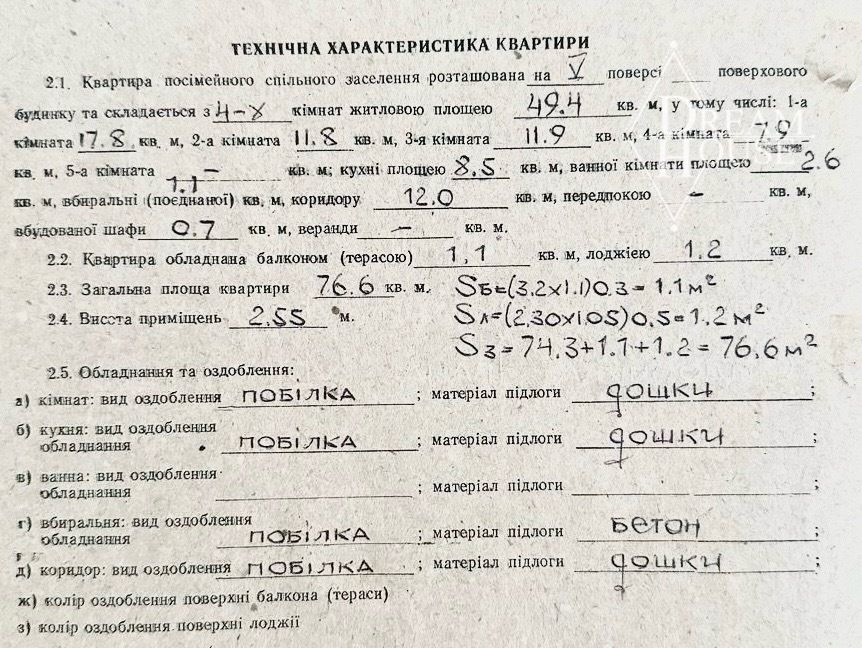 ТЕХНІЧНА ХАРАКТЕРИСТИКА КВАРТИРИ
2.1. Квартира посімейного спільного заселення розташована на V поверсі ___ поверхового
будинку та складається з 4-х кімнат житловою площею 49.4 кв. м, у тому числі: 1-а
кімната 17.8 кв. м, 2-а кімната 11.8 кв. м, 3-я кімната 11.9 кв. м, 4-а кімната 7.9
кв. м, 5-а кімната – кв. м; кухні площею 8.5 кв. м, ванної кімнати площею 2.6
кв. м, вбиральні (поєднаної) 1.1 кв. м, коридору 12.0 кв. м, передпокою – кв. м,
вбудованої шафи 0.7 кв. м, веранди – кв. м.
2.2. Квартира обладнана балконом (терасою) 1,1 кв. м, лоджією 1.2 кв. м.
2.3. Загальна площа квартири 76.6 кв. м. Sб=(3.2х1.1)0.3= 1.1м²
2.4. Висота приміщень 2.55 м. Sл=(2,30х1.05)0,5=1.2м²
Sз=74.3+1.1+1.2= 76,6м²
2.5. Обладнання та оздоблення:
а) кімнат: вид оздоблення ПОБІЛКА ; матеріал підлоги ДОШКИ ;
б) кухня: вид оздоблення
обладнання ПОБІЛКА ; матеріал підлоги ДОШКИ ;
в) ванна: вид оздоблення
обладнання ; матеріал підлоги ;
г) вбиральня: вид оздоблення
обладнання ПОБІЛКА ; матеріал підлоги БЕТОН ;
д) коридор: вид оздоблення ПОБІЛКА ; матеріал підлоги ДОШКИ ;
ж) колір оздоблення поверхні балкона (тераси)
з) колір оздоблення поверхні лоджії